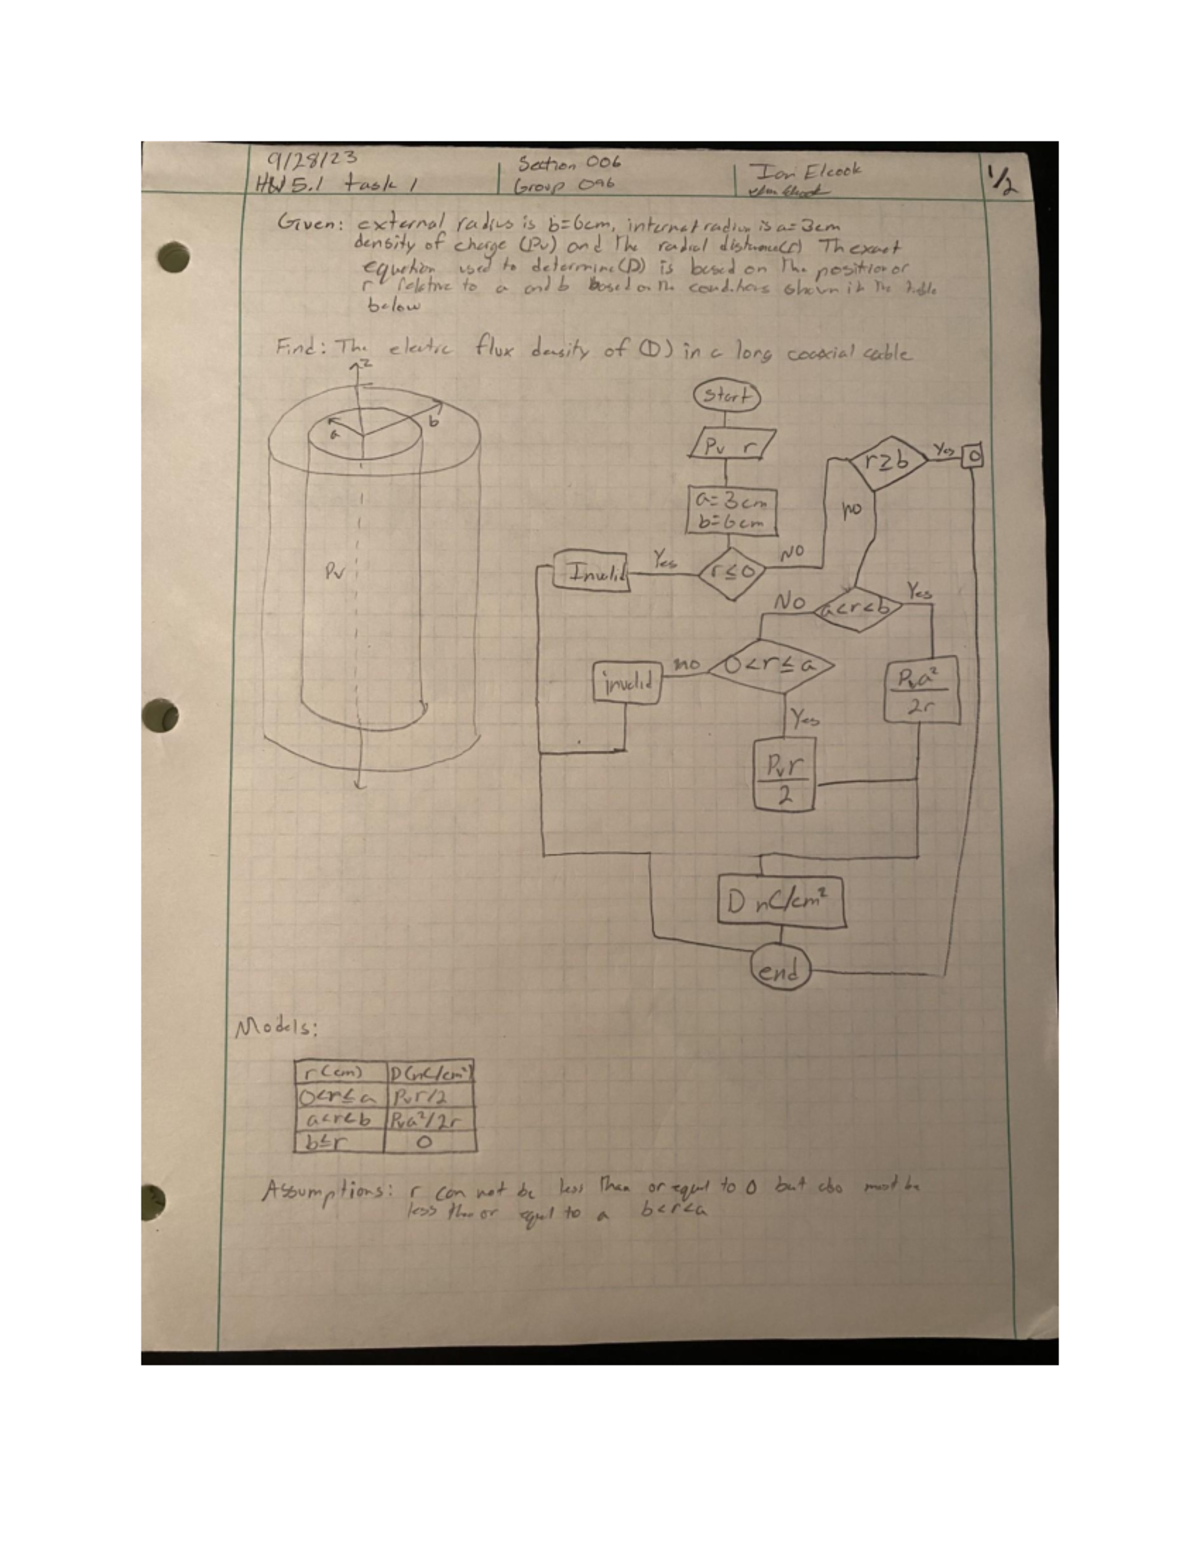 9/28/23
HW 5.1 task 1
Section 006
Group 096
Ian Elcook
1/2
Given: external radius is b=6cm, internal radius is a=3cm
density of charge (Pv) and the radial distance(r) The exact
equation used to determine (D) is based on the position or
r relative to a and b based on the conditions shown in the table
below
Find: The electric flux density of (D) in a long coaxial cable
z
a
b
Pv
Start
Pv r
a=3cm
b=6cm
r≤0
Yes
Invalid
NO
r≥b
Yes
0
no
a<r<b
Yes
Pva²
2r
NO
0<r≤a
no
invalid
Yes
Pvr
2
D nC/cm²
end
Models:
r(cm) D(nC/cm²)
0<r≤a Pvr/2
a<r<b Pva²/2r
b≤r 0
Assumptions: r can not be less than or equal to 0 but also must be
less than or equal to a b<r<a